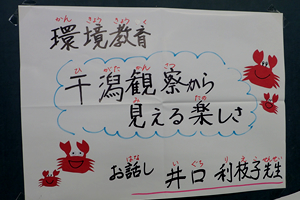 かんきょうきょういく
環境教育
ひがたかんさつ
干潟観察から
みたの
見える楽しさ
はないぐちりえこせんせい
お話し 井口 利枝子先生